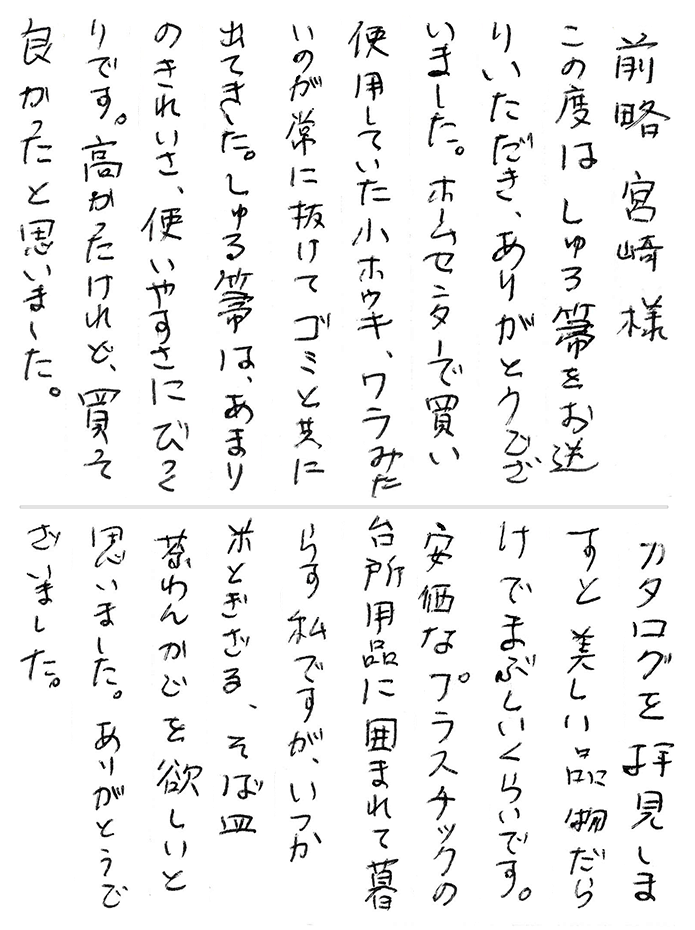 前略 宮崎様
この度はしゅろ箒をお送
りいただき、ありがとうござ
いました。ホームセンターで買い
使用していた小ホウキ、ワラみた
いのが常に抜けてゴミと共に
出てきた。しゅろ箒は、あまり
のきれいさ、使いやすさにびっく
りです。高かったけれど、買って
良かったと思いました。
カタログを拝見しま
すと美しい品物だら
けでまぶしいくらいです。
安価なプラスチックの
台所用品に囲まれて暮
らす私ですが、いつか
米とぎざる、そば皿
茶わんかごを欲しいと
思いました。ありがとうご
ざいました。